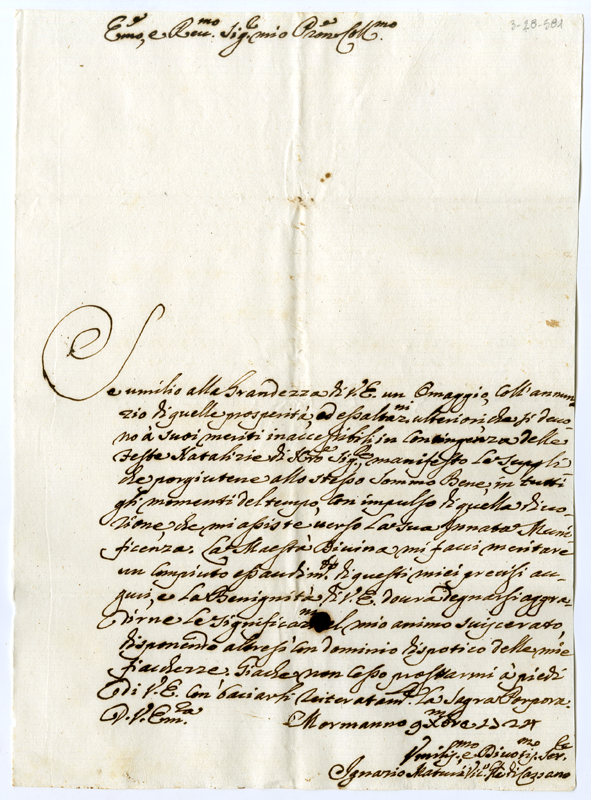 3-28-581
E.mo, e Reu.mo Sig.re mio P.rone Coll.mo
Se umilio alla Grandezza di V.E. un Omaggio, coll'annun-
zio di quelle prosperità, ed esaltaz.ni ulteriori, che si deuo
no à suoi meriti inaccessibili, in contingenza delle
feste Natalizie di N.ro Sig.re, manifesto le suppli
che porgiutene allo stesso Sommo Bene, in tutti
gli momenti del tempo, con impulso di quella diuo
zione, che mi assiste uerso la sua Innata Muni
ficenza. La Maestà Diuina mi facci meritare
un compiuto esaudim.to di questi miei precisi au-
guri, e la Benignità di V.E. dourà degnarsi aggra-
dirne le significaz.ni del mio animo suiscerato,
disponendo altresì con dominio dispotico delle mie
fiacchezze. Giache non cesso prostrarmi à piedi
di V.E. con baciarli reiteratam.te la Sagra Porpora.
D. V. Em.za Mormanno 9 Xbre
Umilis.mo e Diuotis.mo Ser.
Ignazio Maturi di Cassano